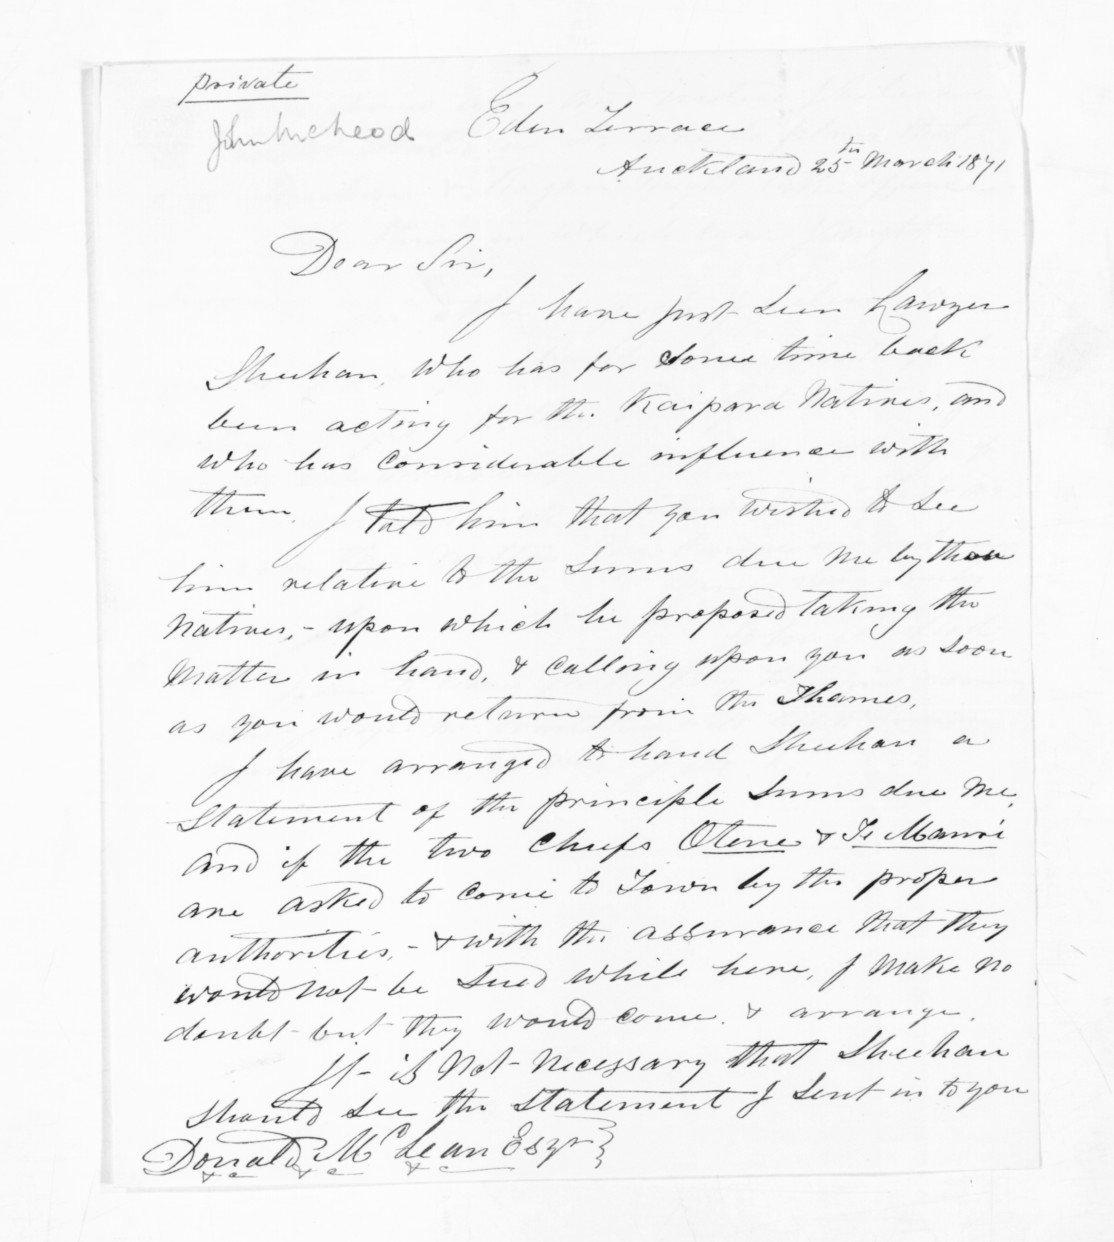 private
John McLeod
Eden Terrace
Auckland 25th March 1871
Dear Sir,
I have just seen Lawyer
Sheehan, who has for some time back
been acting for the Kaipara Natives, and
who has considerable influence with
them. I told him that you wished to see
him relative to the sums due me by those
Natives, - upon which he proposed taking the
matter in hand, & calling upon you as soon
as you would return from the Thames.
I have arranged to hand Sheehan a
statement of the principle sums due me,
and if the two Chiefs Otene & Te Mauri
are asked to come to Town by the proper
authorities, - & with the assurance that they
would not be sued while here, I make no
doubt but they would come & arrange.
It is not necessary that Sheehan
should see the statement I sent in to you
Donald McLean Esqr
&c &c &c